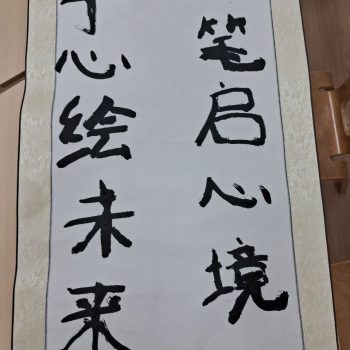 笔启心境
心绘未来